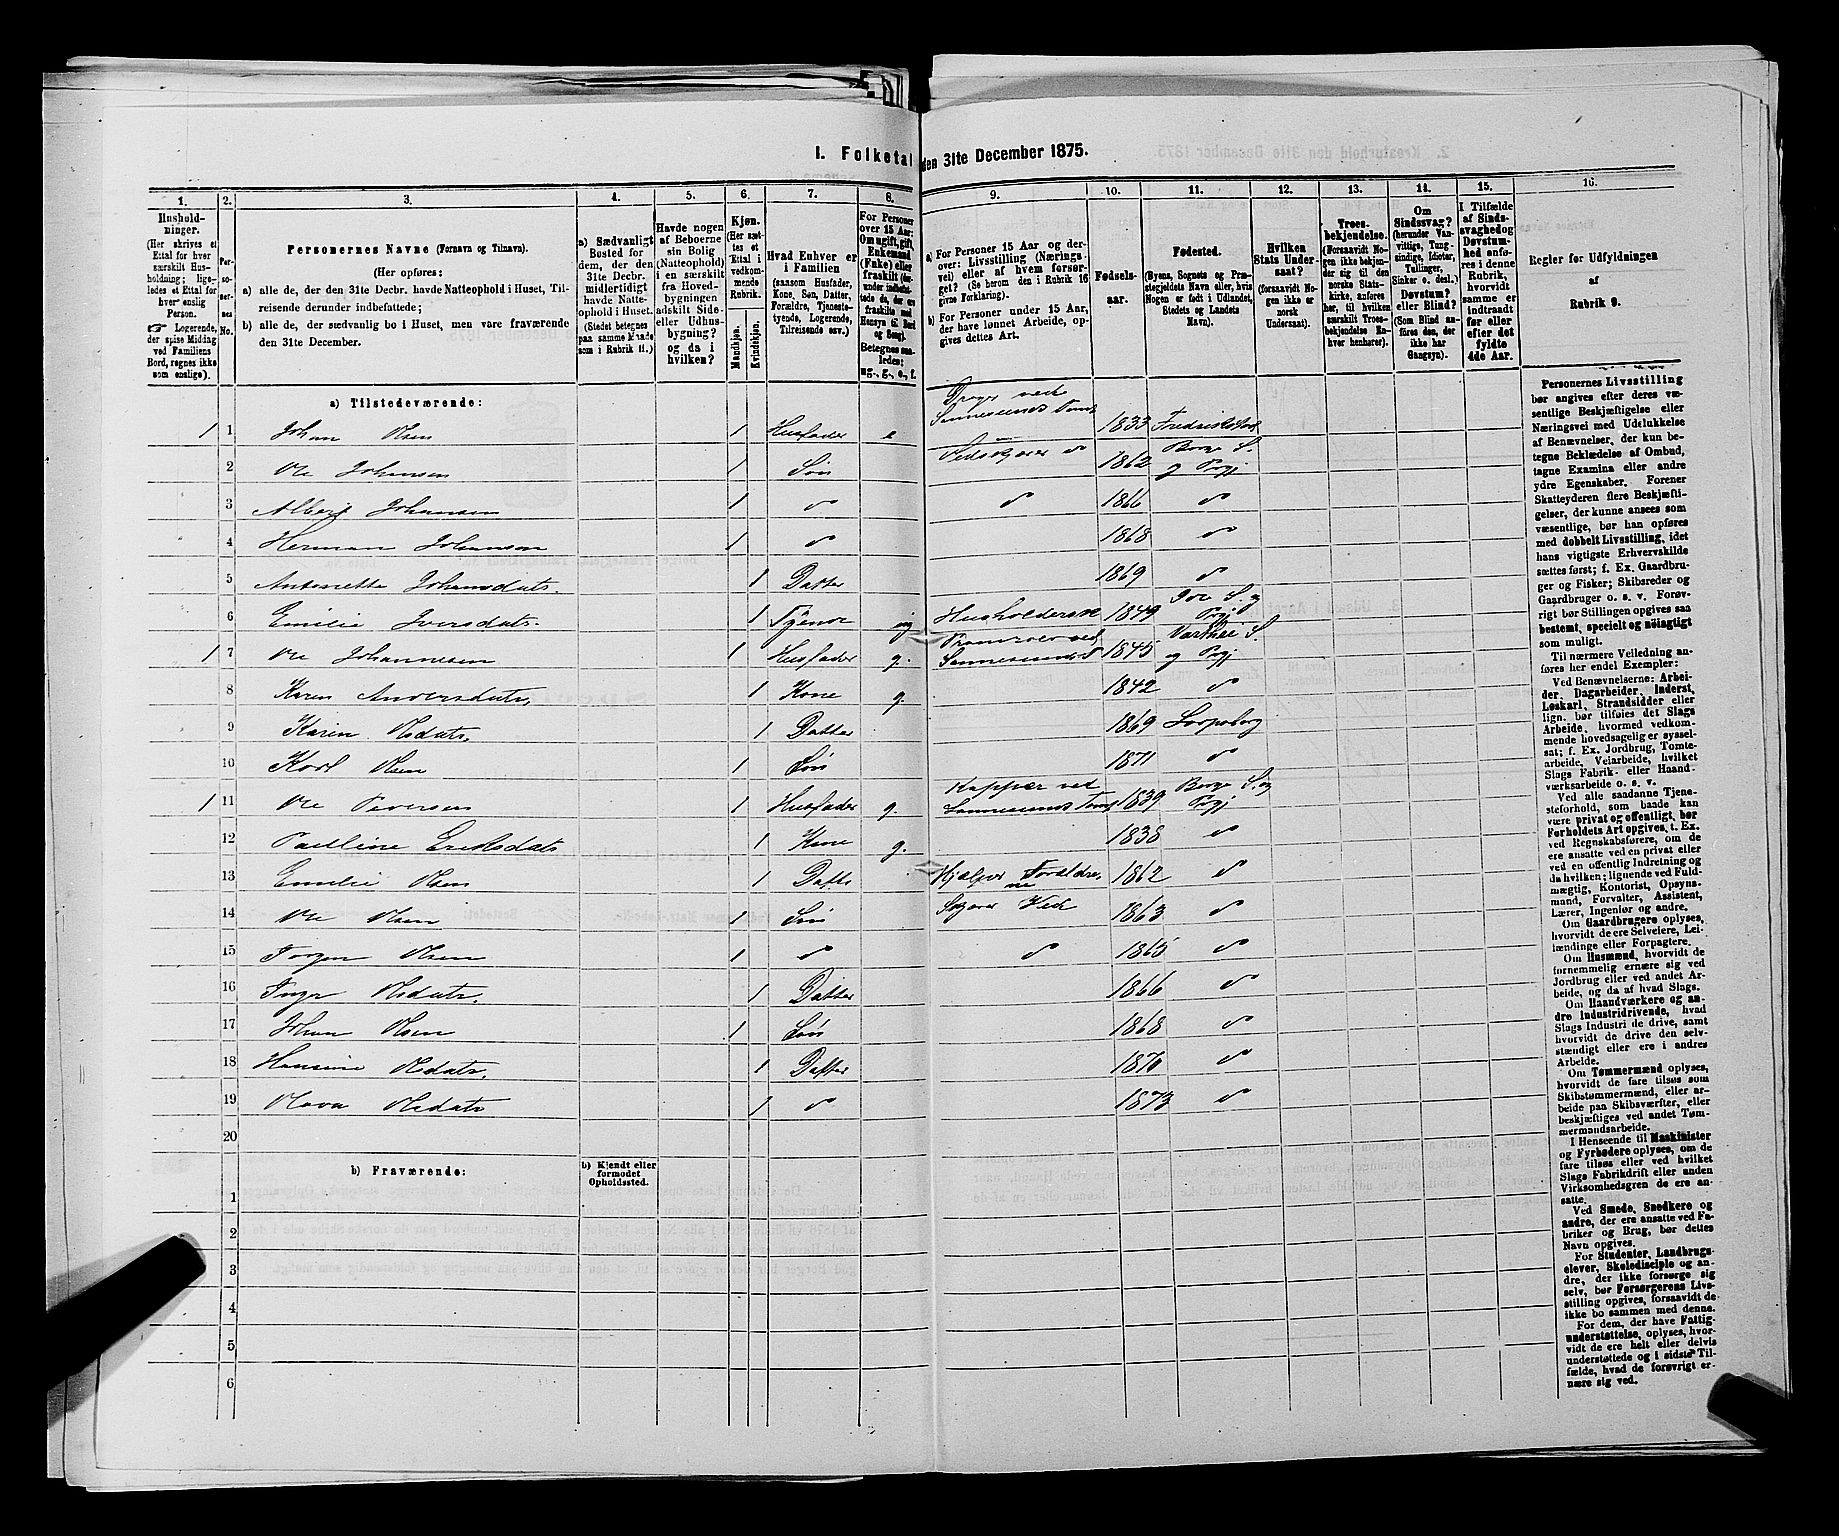 I. Folketal den 31te December 1875.
1. 2. 3. 4. 5. 6. 7. 8. 9. 10. 11. 12. 13. 14. 15. 16.
Hushold-
ninger.
(Her skrives et
Ettal for hver
særskilt Hus-
holdning; lige-
ledes et Ettal for
hver enslig
Person.
☞ Logerende,
der spise Middag
ved Familiens
Bord, regnes ikke
som enslige).
Per-
so-
ner-
nes
No.
Personernes Navne (Fornavn og Tilnavn).
(Her opføres:
a) alle de, der den 31te Decbr. havde Natteophold i Huset, Til-
reisende derunder indbefattede;
b) alle de, der sædvanlig bo i Huset, men vare fraværende
den 31te December.
a) Sædvanligt
Bosted for
dem, der den
31te Decbr.
midlertidigt
havde Natte-
ophold i Huset.
(Stedet betegnes
paa samme Maade
som i Rubrik 11.)
Havde nogen
af Beboerne
sin Bolig
(Natteophold)
i en særskilt
fra Hoved-
bygningen
adskilt Side-
eller Udhus-
bygning?
og da i
hvilken?
Kjøn.
(Her sæt-
tes et
Ettal i
vedkom-
mende
Rubrik.
Mandkjøn.
Kvindekjøn.
Hvad Enhver er
i Familien
(saasom Husfader,
Kone, Søn, Datter,
Forældre, Tjeneste-
tyende, Logerende,
Tilreisende osv.)
For Personer
over 15 Aar:
Om ugift, gift,
Enkemand
(Enke) eller
fraskilt
Betegnes saa-
ledes:
ug., g., e., f.
a) For Personer 15 Aar og der-
over: Livsstilling (Nærings-
vei) eller af hvem forsør-
get? (Se herom den i Rubrik 16
givne Forklaring).
b) For Personer under 15 Aar,
der have lønnet Arbeide, op-
gives dettes Art.
Fødsels-
aar.
Fødested.
(Byens, Sognets og Præ-
stegjeldets Navn eller, hvis
Nogen er født i Udlandet,
Stedets og Landets
Navn).
Hvilken
Stats Under-
saat?
(forsaavidt No-
gen ikke er
norsk
Undersaat).
Troes-
bekjendelse.
(Forsaavidt No-
gen ikke bekjen-
der sig til den
norske Stats-
kirke, anføres
her, til hvilken
særskilt Troes-
bekjendelse En-
hver henhører).
Om
Sindssvag?
(herunder Van-
vittige, Tung-
sindige, Idioter,
Tullinger,
Sinker o. desl.)
Døvstum?
eller Blind?
(Som Blind an-
føres den, der
ikke har
Gangsyn).
I Tilfælde
af Sinds-
svaghed og
Døvstum-
hed anfø-
res i denne
Rubrik,
hvorvidt
samme er
indtraadt
før eller
efter det
fyldte
4de Aar.
Regler for Udfyldningen
af
Rubrik 9.
a) Tilstedeværende:
Drager ved
Sannesunds Tomt
1 1 Johan Olsen 1 Husfader e 1833 Fredrikstad
2 Ole Johansen 1 Søn 1862 Borge S. og Prgj
3 Albert Johansen 1 do do 1866 do
4 Herman Johansen 1 do 1868 do
5 Antonette Johansdatr. 1 Datter 1869 do
6 Emilie Iversdatr. 1 Tjener ug Husholderske 1849 S. og Prgj
1 7 Ole Johannesen 1 Husfader g. 1845 S. og Prgj
8 Karen Andersdatr. 1 Kone g. 1842 do
9 Karen Olsdatr. 1 Datter 1869 Sarpsborg
10 Karl Olsen 1 Søn 1871 do
1 11 Ole Petersen 1 Husfader g. Kapper ved Sannesunds Tomt 1839 Borge S. og Prgj
12 Pauline Eriksdatr 1 Kone g. 1838 do
13 Emelie Olsen 1 Datter Hjælper Forældrene 1862 do
14 Ole Olsen 1 Søn Skjærer Ved 1863 do
15 Jørgen Olsen 1 do do 1865 do
16 Inge Olsdatr. 1 Datter 1866 do
17 Johan Olsen 1 Søn 1868 do
18 Hansine Olsdatr. 1 Datter 1870 do
19 Olava Olsdatr 1 do 1873 do
20
b) Fraværende:
b) Kjendt eller
formodet
Opholdssted.
1
2
3
4
5
6
Personernes Livsstilling
bør angives efter deres væ-
sentlige Beskjæftigelse eller
Næringsvei med Udelukkelse
af Benævnelser, der kun be-
tegne Beklædelse af Ombud,
tagne Examina eller andre
ydre Egenskaber. Forener
Skatteyderen flere Beskjæfti-
gelser, der kunne ansees som
væsentlige, bør han opføres
med dobbelt Livsstilling, idet
hans vigtigste Erhvervskilde
sættes først; f. Ex. Gaardbru-
ger og Fisker; Skibsreder og
Gaardbruger o. s. v. Forøv-
rigt bør Stillingen opgives saa
bestemt, specielt og nøiagtigt
som muligt.
Til nærmere Veiledning an-
føres her endel Exempler:
Ved Benævnelserne: Arbei-
der, Dagarbeider, Inderst,
Løskarl, Strandsidder eller
lign. bør tilføies det Slags
Arbeide, hvormed vedkom-
mende hovedsagelig er syssel-
sat; f. Ex. Jordbrug, Tomte-
arbeide, Veiarbeide, hvilket
Slags Fabrik- eller Haand-
værksarbeide o. s. v.
Ved alle saadanne Tjene-
steforhold, som baade kan
være privat og offentligt, bør
Forholdets Art opgives, t. Ex.
ved Regnskabsførere, om de
ere ansatte ved en privat eller
ved en offentlig Indretning og
da hvilken; lignende ved Fuld-
mægtig, Kontorist, Opsyns-
mand, Forvalter, Assistent,
Lærer, Ingeniør og andre.
Om Gaardbrugere oplyses,
hvorvidt de ere Selveiere, Lei-
lændinge eller Forpagtere.
Om Husmænd, hvorvidt de
fornemmelig ernære sig ved
Jordbrug eller ved andet Ar-
beide, og da af hvad Slags.
Om Haandværkere og an-
dre Industridrivende, hvad
Slags Industri de drive, samt
hvorvidt de drive den selv-
stændigt eller ere i andres
Arbeide.
Om Tømmermænd oplyses,
hvorvidt de fare tilsøs som
Skibstømmermænd, eller ar-
beide paa Skibsværfter, eller
beskjæftiges ved andet Tøm-
mermandsarbeide.
I Henseende til Maskinister
og Fyrbødere oplyses, om de
fare tilsøs eller ved hvilket
Slags Fabrikdrift eller anden
Virksomhedsgren de ere an-
satte.
Ved Smede, Snedkere og
andre, der ere ansatte ved Fa-
briker og Brug, bør dettes
Navn opgives.
For Studenter, Landbrugs-
elever, Skoledisciple og an-
dre, der ikke forsørge sig
selv, bør Forsørgerens Livs-
stilling opgives, forsaavidt de
ikke bo sammen med denne.
For dem, der have Fattig-
understøttelse, oplyses, hvor-
vidt de ere helt eller delvis
understøttede og i sidste Til-
fælde, hvad de forøvrigt er-
nære sig ved.